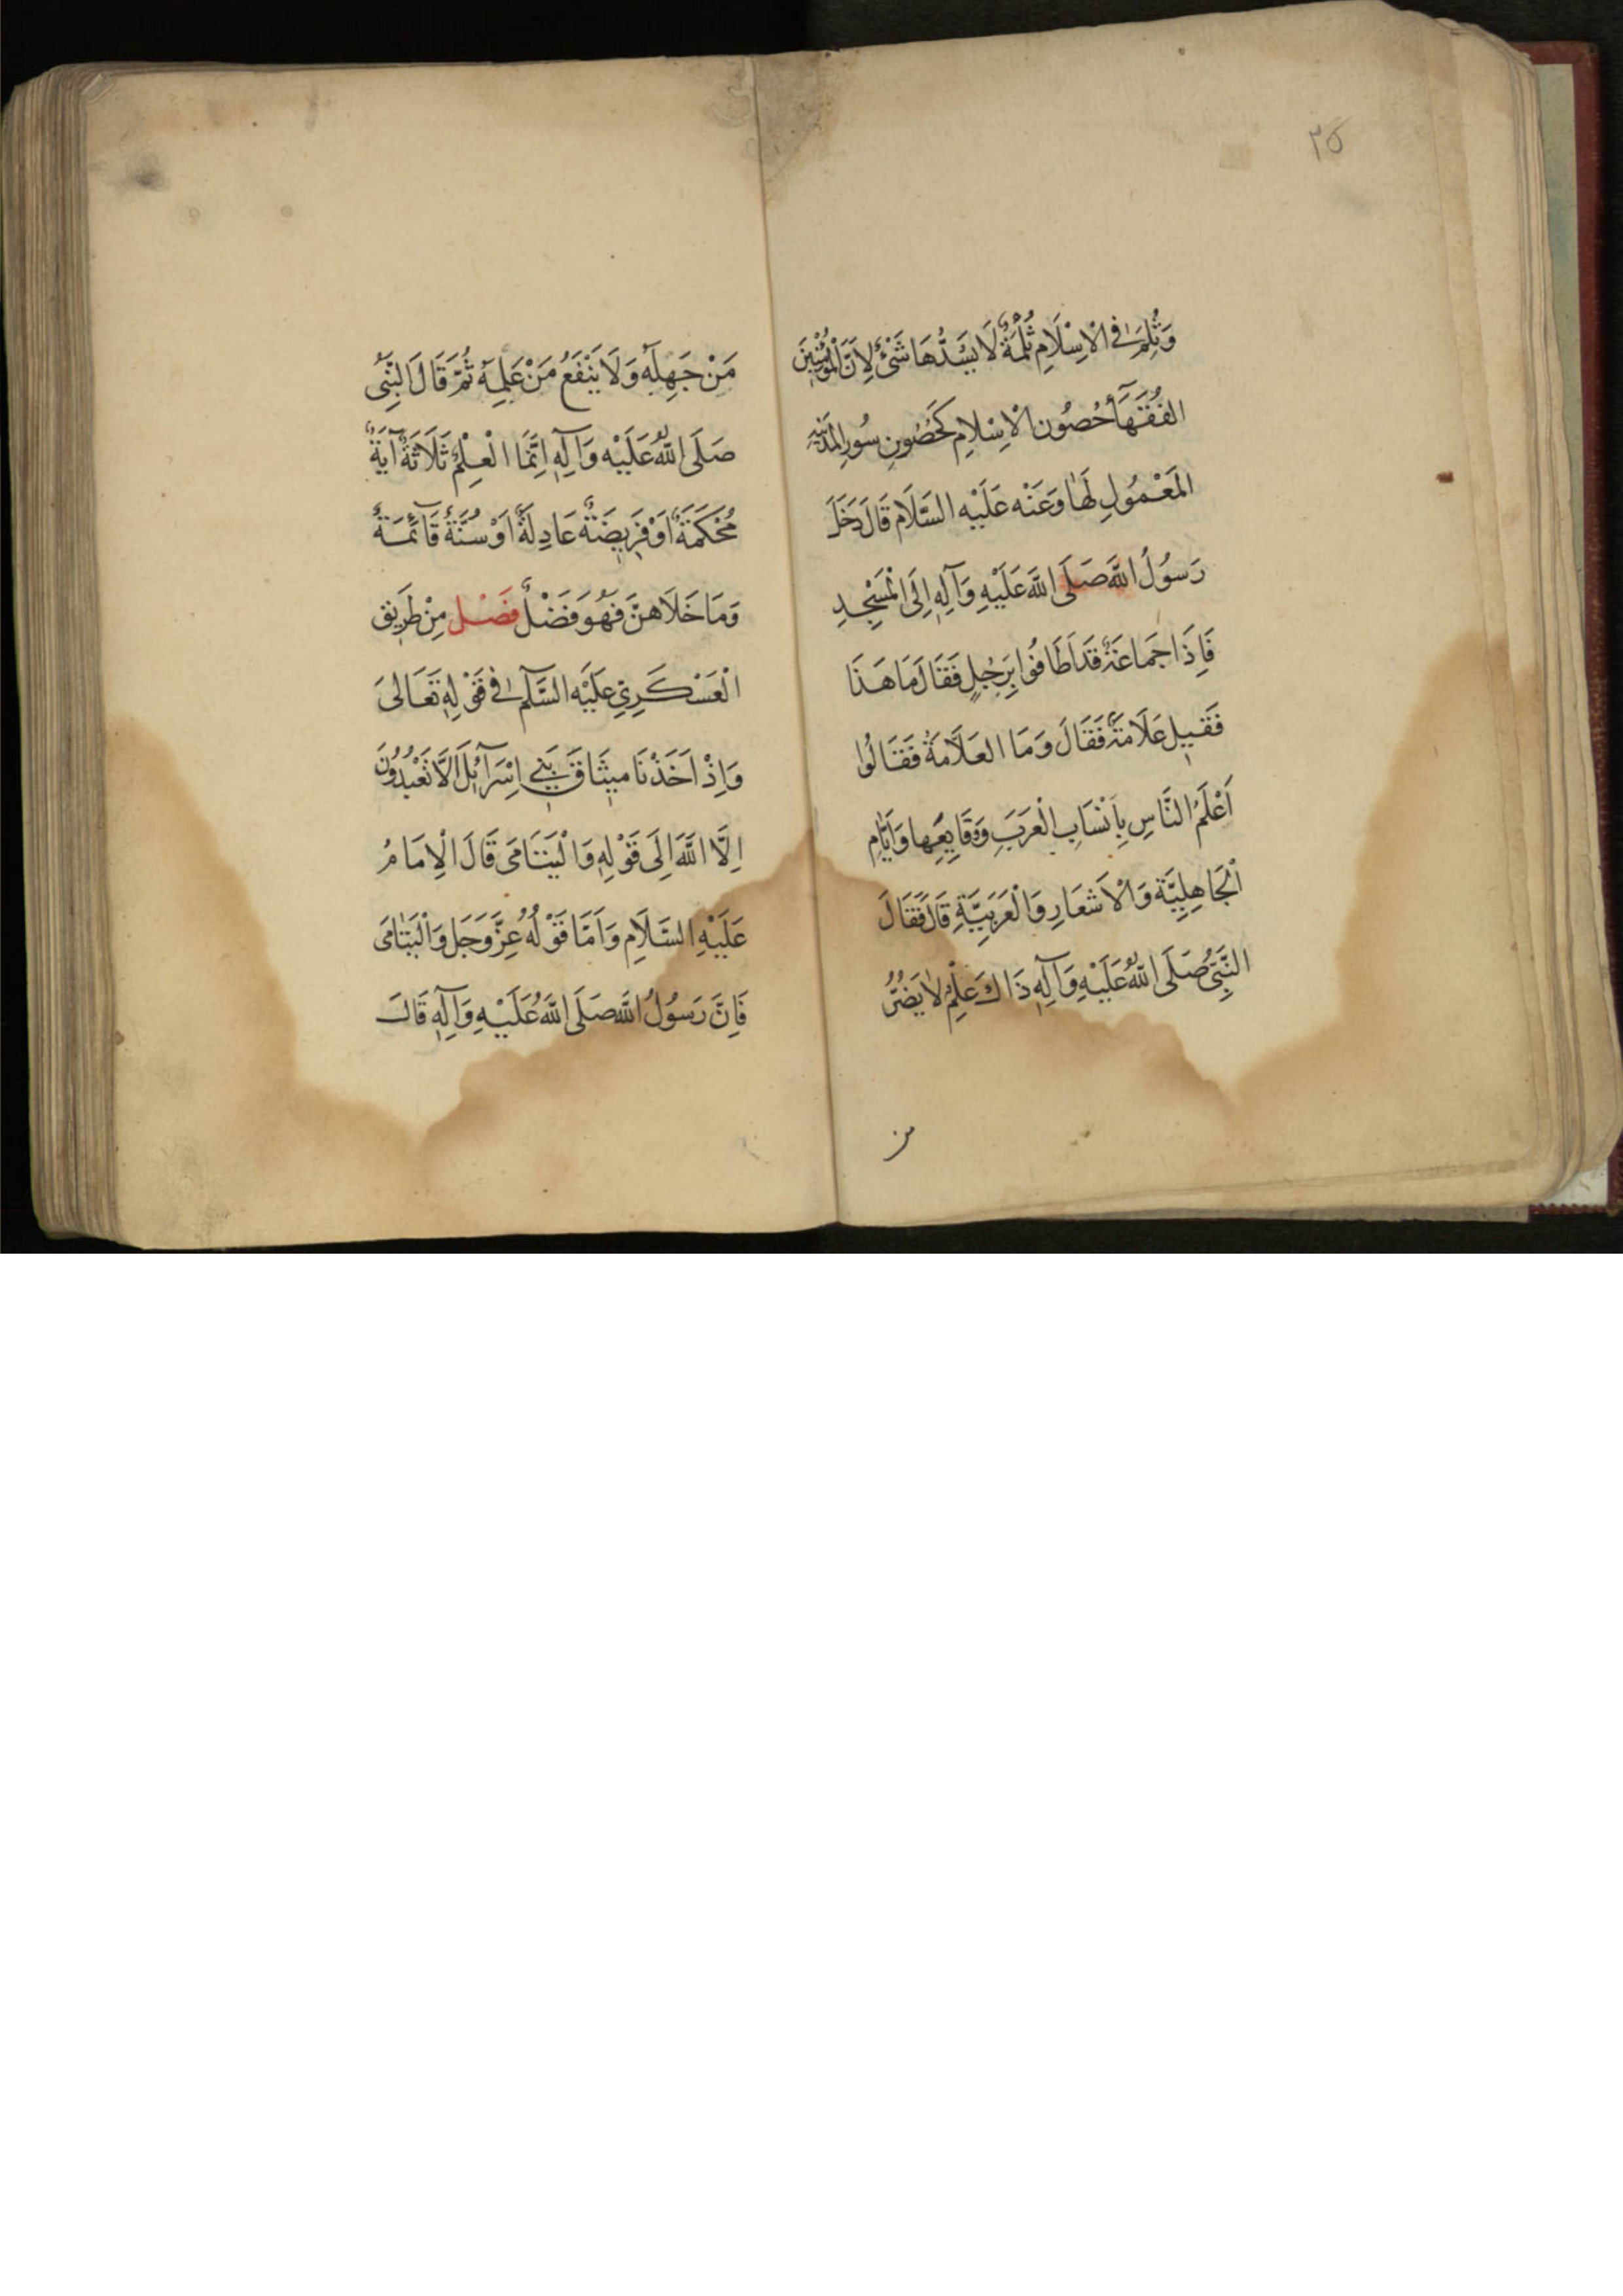 ٣٥
وَثُلِمَ فِى الْاِسْلَامِ ثُلْمَةٌ لَا يَسُدُّهَا شَىْءٌ لِاَنَّ الْمُؤْمِنِينَ
الفُقَهَآءَ حُصُون الْاِسْلَامِ كَحُصُونِ سُورِ المَدِينَةِ
المَعْمُولِ لَهَا وَعَنْه عَلَيْهِ السَّلَام قَالَ دَخَلَ
رَسُولُ اللّٰهِ صَلَى اللّٰهَ عَلَيْهِ وَآلِهِ اِلَى الْمَسْجِدِ
فَاِذَا جَمَاعَةٌ قَد اَطَافُوا بِرَجُلٍ فَقَالَ مَا هَذَا
فَقِيلَ عَلَامَةٌ فَقَالَ وَمَا العَلَّامَةُ فَقَالُوا
اَعْلَمُ النَّاسِ بِاَنْسَابِ الْعَرَبِ وَوَقَايِعِهَا وَاَيَّامِ
الْجَاهِلِيَّة وَالْاَشعَارِ وَالْعَرَبِيَّةِ قَالَ فَقَالَ
النَّبِىُّ صَلَى اللّٰهُ عَلَيْهِ وَآلِهِ ذَاكَ عَلِمٌ لَا يَضُرُّ
من
مَنْ جَهِلَهُ وَلَا يَنْفَعُ مَنْ عَلِمَهُ ثُمَّ قَالَ النَّبِىُّ
صَلَى اللّٰهُ عَلَيْه وَآلِهِ اِنَّمَا الْعِلْمُ ثَلَاثَةٌ آيَةٌ
مُحْكَمَةٌ اَوْ فَرِيضَةٌ عَادِلَةٌ اَوْ سُنَّةٌ قَآئِمَةٌ
وَمَا خَلَاهنَّ فَهُوَ فَضْلٌ فَصْل مِنْ طَرِيق
الْعَسْكَرِيِّ عَلَيْهِ السَّلَم فِى قَوْلِهِ تَعَالىَ
وَاِذْ اَخَذْنَا مِيثَاقَ بَنِي اِسْرَآئِلَ اَلَّا تَعْبُدُونَ
اِلَّا اللّٰهَ اِلَى قَوْلِهِ وَالْيَتَامَى قَالَ الْاِمَامُ
عَلَيْهِ السَّلَامِ وَاَمَّا قَوْلُهُ عِزَّ وَجَل وَالْيَتَامَى
فَاِنَّ رَسُولُ اللّٰهَ صَلَى اللّٰهَ عَلَيْهِ وَآلِهِ قَالَ